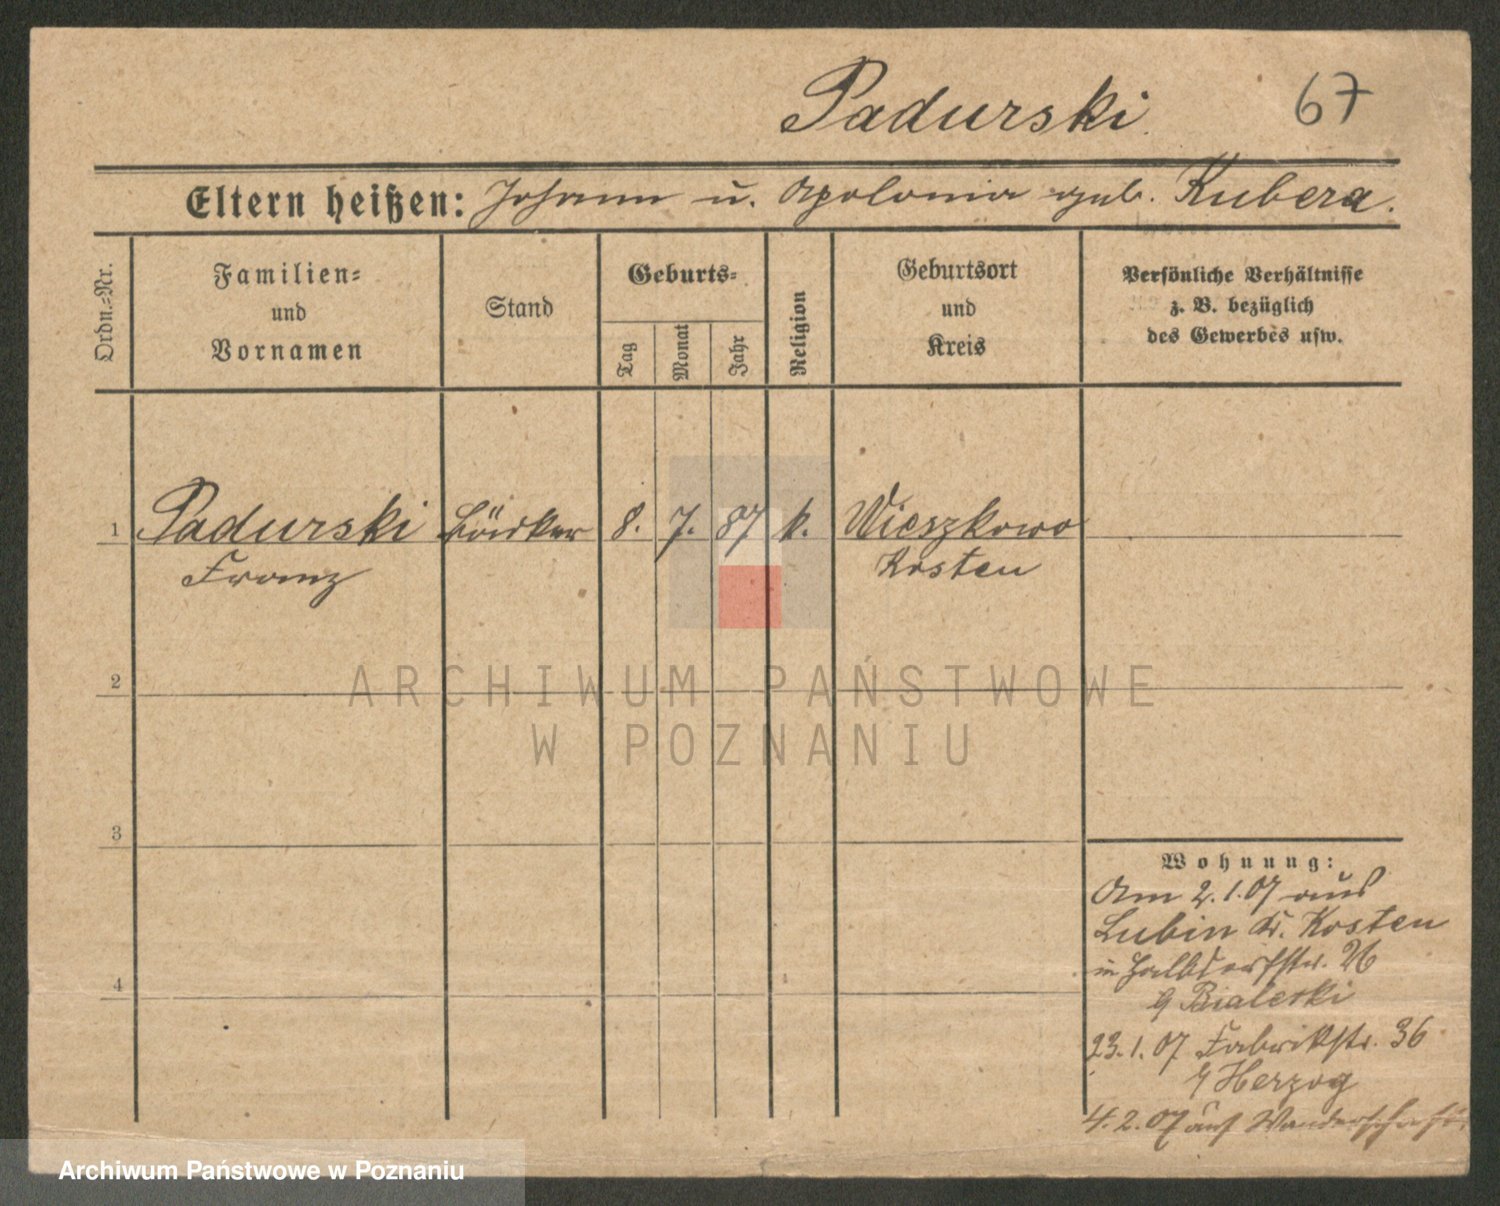 Padurski
67
Eltern heißen: Johann u. Apolonia geb. Kubera.
Ordn.-Nr.
Familien-
und
Vornamen
Stand
Geburts-
Tag
Monat
Jahr
Religion
Geburtsort
und
Kreis
Persönliche Verhältnisse
z. B. bezüglich
des Gewerbes usw.
1 Padurski 8. 7. 87 k. Wieszkowo
Franz Kosten
2
3
4
Wohnung:
Am 2.1.07 aus
Lubin Kr. Kosten
in Halbdorfstr. 26
Bialecki
23.1.07 Fabrikstr. 36
Herzog
4.2.07 auf Wanderschaft
ARCHIWUM PAŃSTWOWE
W POZNANIU
Archiwum Państwowe w Poznaniu